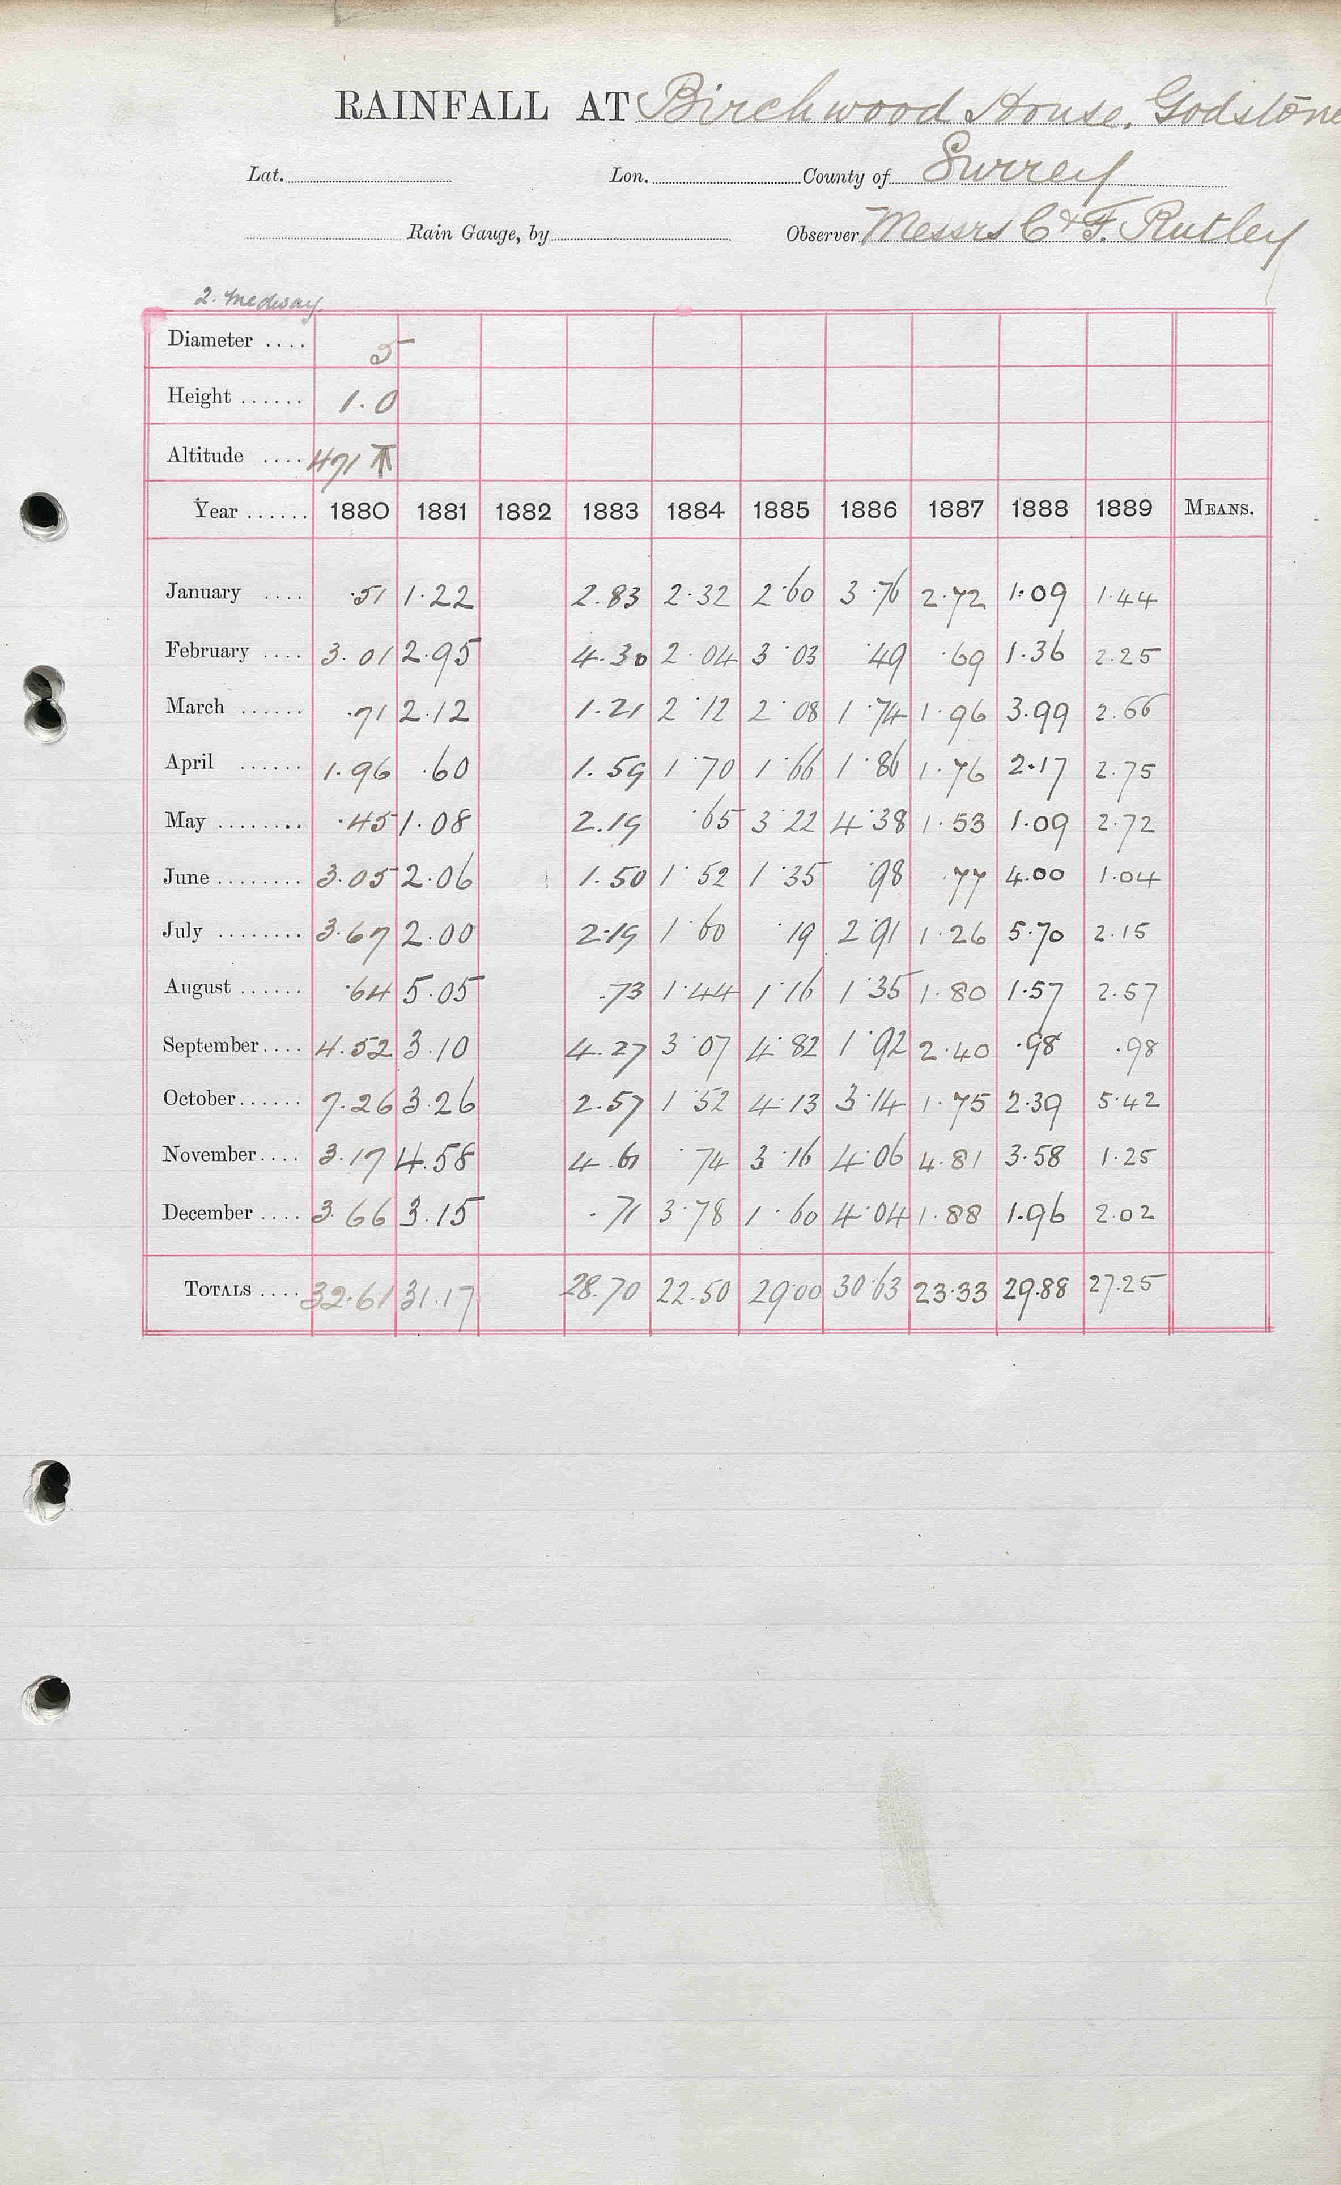 RAINFALL AT Birchwood House, Godstone
Lat. Lon. County of Surrey
Rain Gauge, by Observer Messrs C & F. Rutley
2. Medway.
Diameter .... 5
Height ...... 1.0
Altitude .... 471
Year ...... 1880 1881 1882 1883 1884 1885 1886 1887 1888 1889 MEANS.
January .... .51 1.22 2.83 2.32 2.60 3.76 2.72 1.09 1.44
February .... 3.01 2.95 4.30 2.04 3.03 .49 .69 1.36 2.25
March ...... .71 2.12 1.21 2.12 2.08 1.74 1.96 3.99 2.66
April ...... 1.96 .60 1.59 1.70 1.66 1.86 1.76 2.17 2.75
May ........ .45 1.08 2.19 .65 3.22 4.38 1.53 1.09 2.72
June ........ 3.05 2.06 1.50 1.52 1.35 .98 .77 4.00 1.04
July ........ 3.67 2.00 2.19 1.60 .19 2.91 1.26 5.70 2.15
August ...... .64 5.05 .73 1.44 1.16 1.35 1.80 1.57 2.57
September .... 4.52 3.10 4.27 3.07 4.82 1.92 2.40 .98 .98
October ...... 7.26 3.26 2.57 1.52 4.13 3.14 1.75 2.39 5.42
November .... 3.17 4.58 4.61 .74 3.16 4.06 4.81 3.58 1.25
December .... 3.66 3.15 .71 3.78 1.60 4.04 1.88 1.96 2.02
TOTALS .... 32.61 31.17 28.70 22.50 29.00 30.63 23.33 29.88 27.25